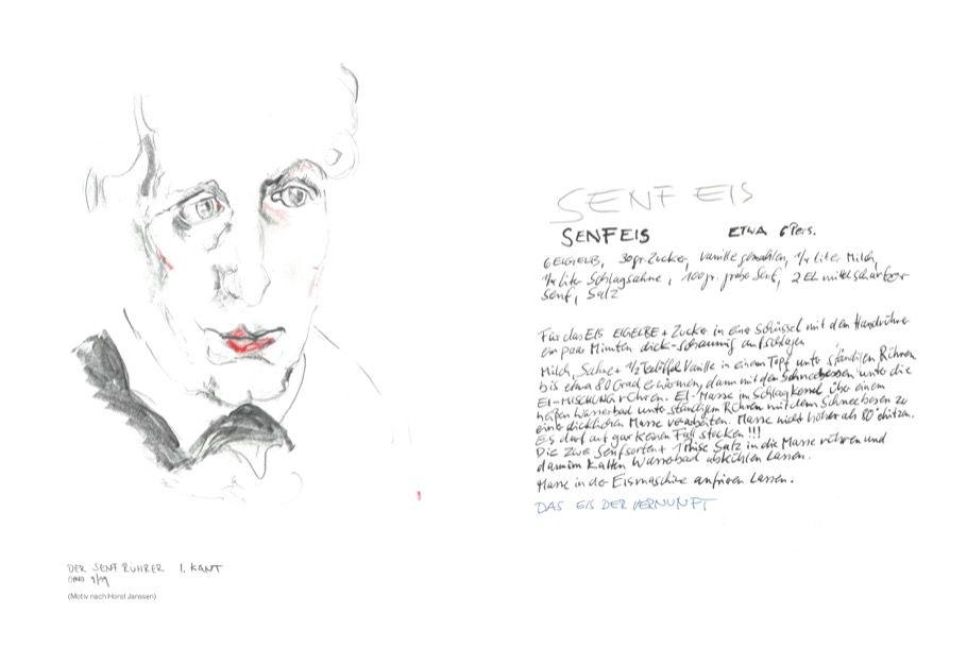 SENF EIS
SENFEIS ETWA 6 Pers.
6 EIGELB, 30 gr. Zucker, Vanille gemahlen, 1/4 liter Milch,
1/4 liter Schlagsahne, 100 gr. grobe Senf, 2 EL mittelscharfer
Senf, Salz
Für das EIS EIGELBE + Zucker in eine Schüssel mit den Handrührer
ein paar Minuten dick-schaumig aufschlagen
Milch, Sahne + 1/2 Teelöffel Vanille in einem Topf unter ständigen Rühren
bis etwa 80 Grad erwärmen, dann mit den Schneebesen unter die
EI-MISCHUNG rühren. EI-Masse im Schlagkessel über einem
heißen Wasserbad unter ständigen Rühren mit dem Schneebesen zu
einer dicklichen Masse verarbeiten. Masse nicht höher als 80° erhitzen.
Es darf auf gar keinen Fall stocken!!!
Die zwei Senfsorten + 1 Prise Salz in die Masse rühren und
dann im kalten Wasserbad abkühlen lassen.
Masse in der Eismaschine anfrieren lassen.
DAS EIS DER VERNUNFT
DER SENF RÜHRER I. KANT
9/99
(Motiv nach Horst Janssen)